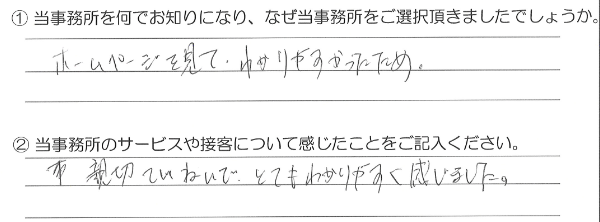 ① 当事務所を何でお知りになり、なぜ当事務所をご選択頂きましたでしょうか。
ホームページを見て、わかりやすかったため。
② 当事務所のサービスや接客について感じたことをご記入ください。
親切ていねいで、とてもわかりやすく感じました。